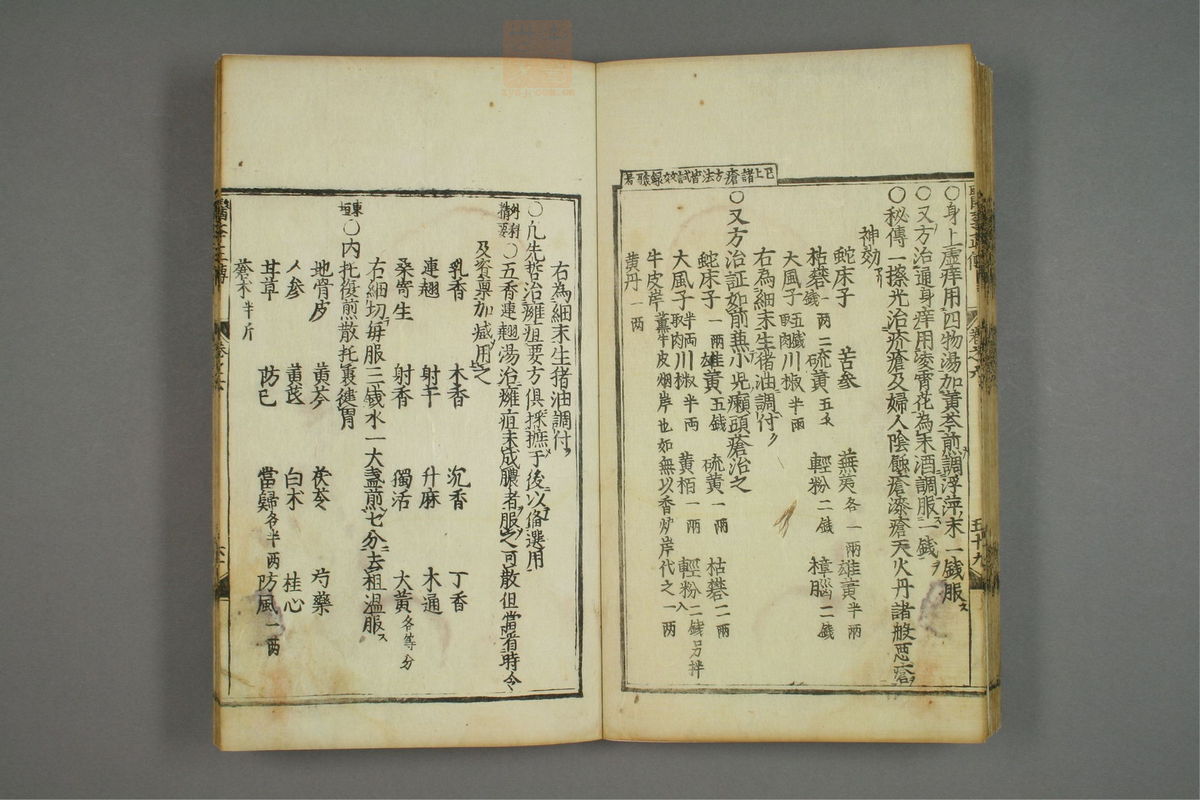 〇身上虛痒用四物湯加黃芩煎調浮萍末一錢服ス
〇又方治通身痒用凌霄花為末酒調服一錢
〇秘傳一擦光治疥瘡及婦人陰蝕瘡漆瘡天火丹諸般惡瘡
神効
蛇床子 苦參 蕪荑各一兩 雄黃半兩
枯礬一兩二錢 硫黃五戔 輕粉二錢 樟腦二錢
大風子五錢取肉 川椒半兩
右為細末生猪油調付
〇又方治証如前兼小児癩頭瘡治之
蛇床子一兩 雄黃五錢 硫黃一兩 枯礬二兩
大風子半両取肉 川椒半両 黃栢一兩 輕粉二錢另拌入
牛皮岸薰牛皮烟岸也如無以香炉岸代之一两
黃丹一两
已上諸瘡方法皆試效錄
五十九
右為細末生猪油調付
〇凢先哲治癰疽要方俱採摭于後以俻選用
外科精要〇五香連翹湯治癰疽未成膿者服之可散但當看時令
及資禀加减用之
乳香 木香 沉香 丁香
連翹 射干 升麻 木通
桑寄生 射香 獨活 大黃各等分
右細切每服三錢水一大盞煎七分去柤溫服ス
東垣〇内托復煎散托裏健胃
地骨皮 黃芩 茯苓 芍藥
人參 黃茋 白朮 桂心
甘草 防已 當歸各半两 防風一两
蒼朮半斤